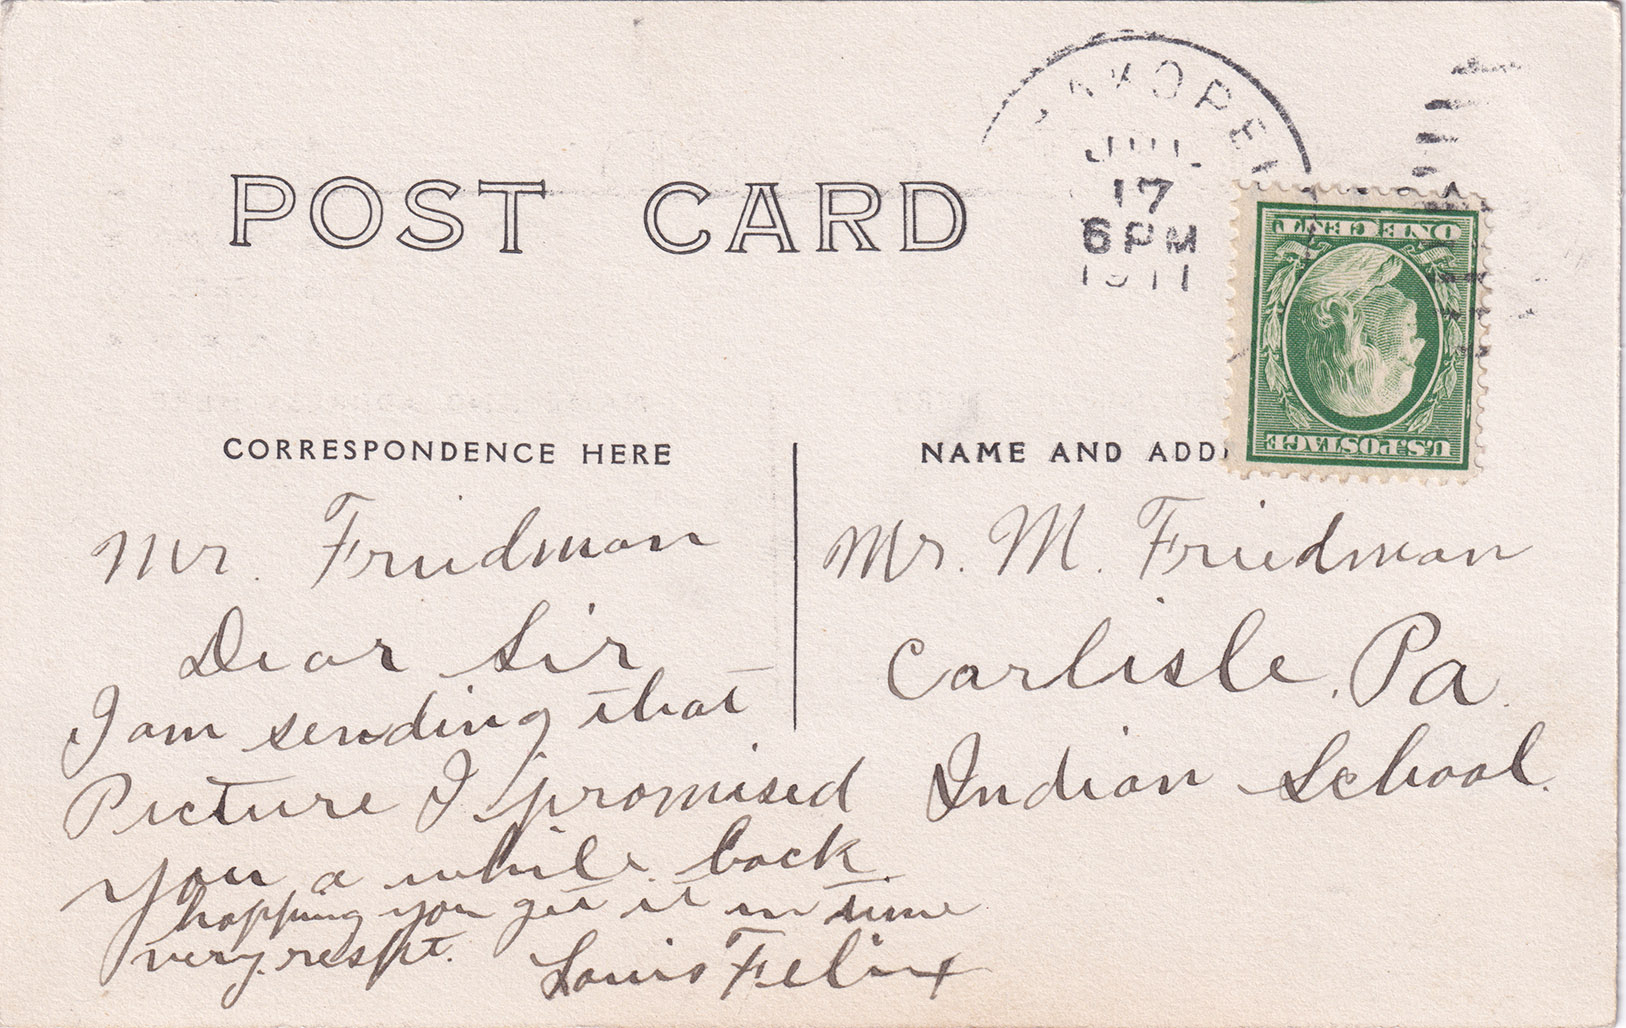 POST CARD
JUL
17
6 PM
1911
ONE CENT
U.S. POSTAGE
CORRESPONDENCE HERE
Mr. Friedman
Dear Sir
I am sending that
Picture I promised
you a while back
hopping you get it in time
very respt.
Louis Felix
NAME AND ADD
Mr. M. Friedman
Carlisle, Pa.
Indian School.